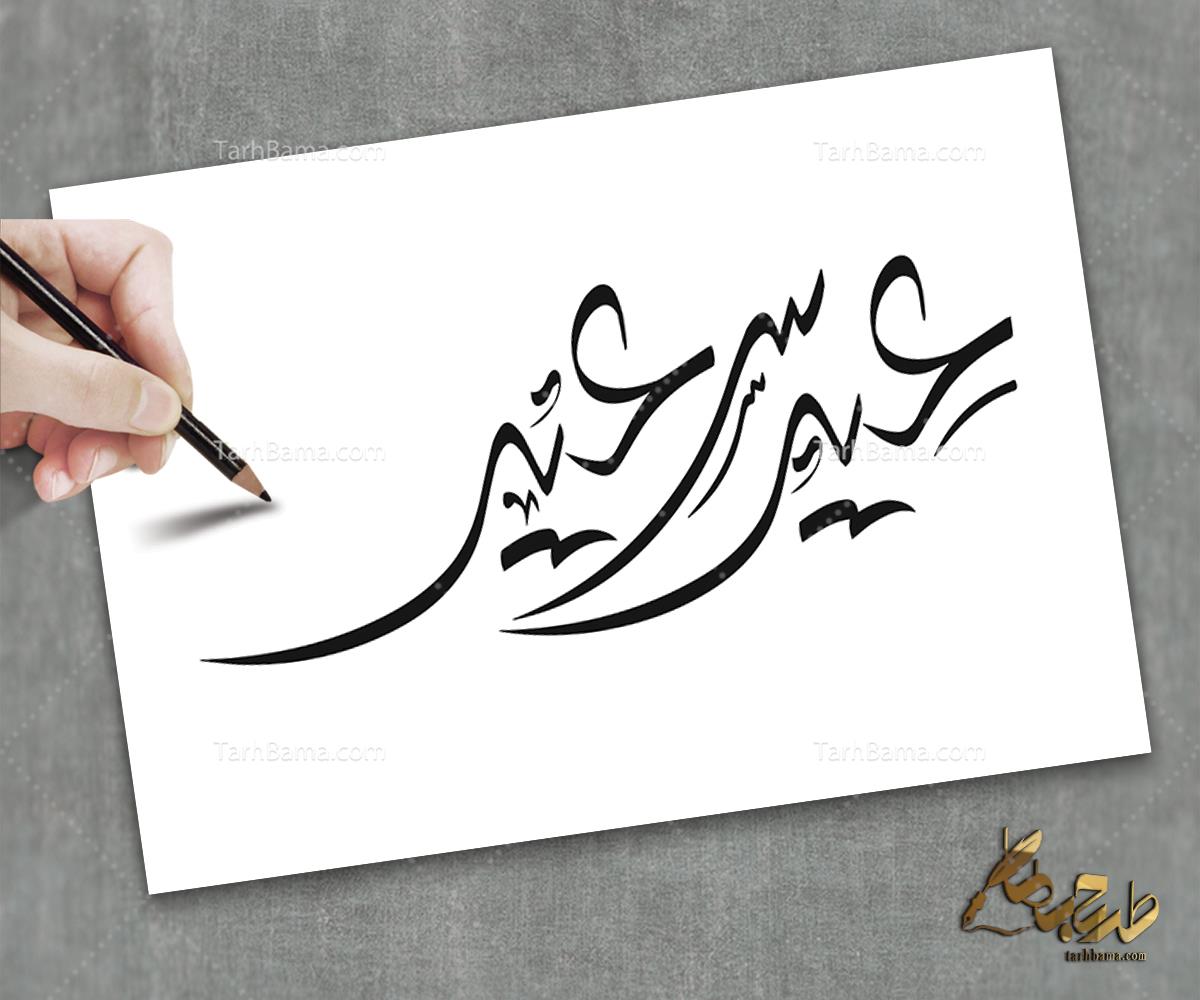 TarhBama.com TarhBama.com
عید سعید
TarhBama.com TarhBama.com
TarhBama.com TarhBama.com
طرح با ما
tarhbama.com